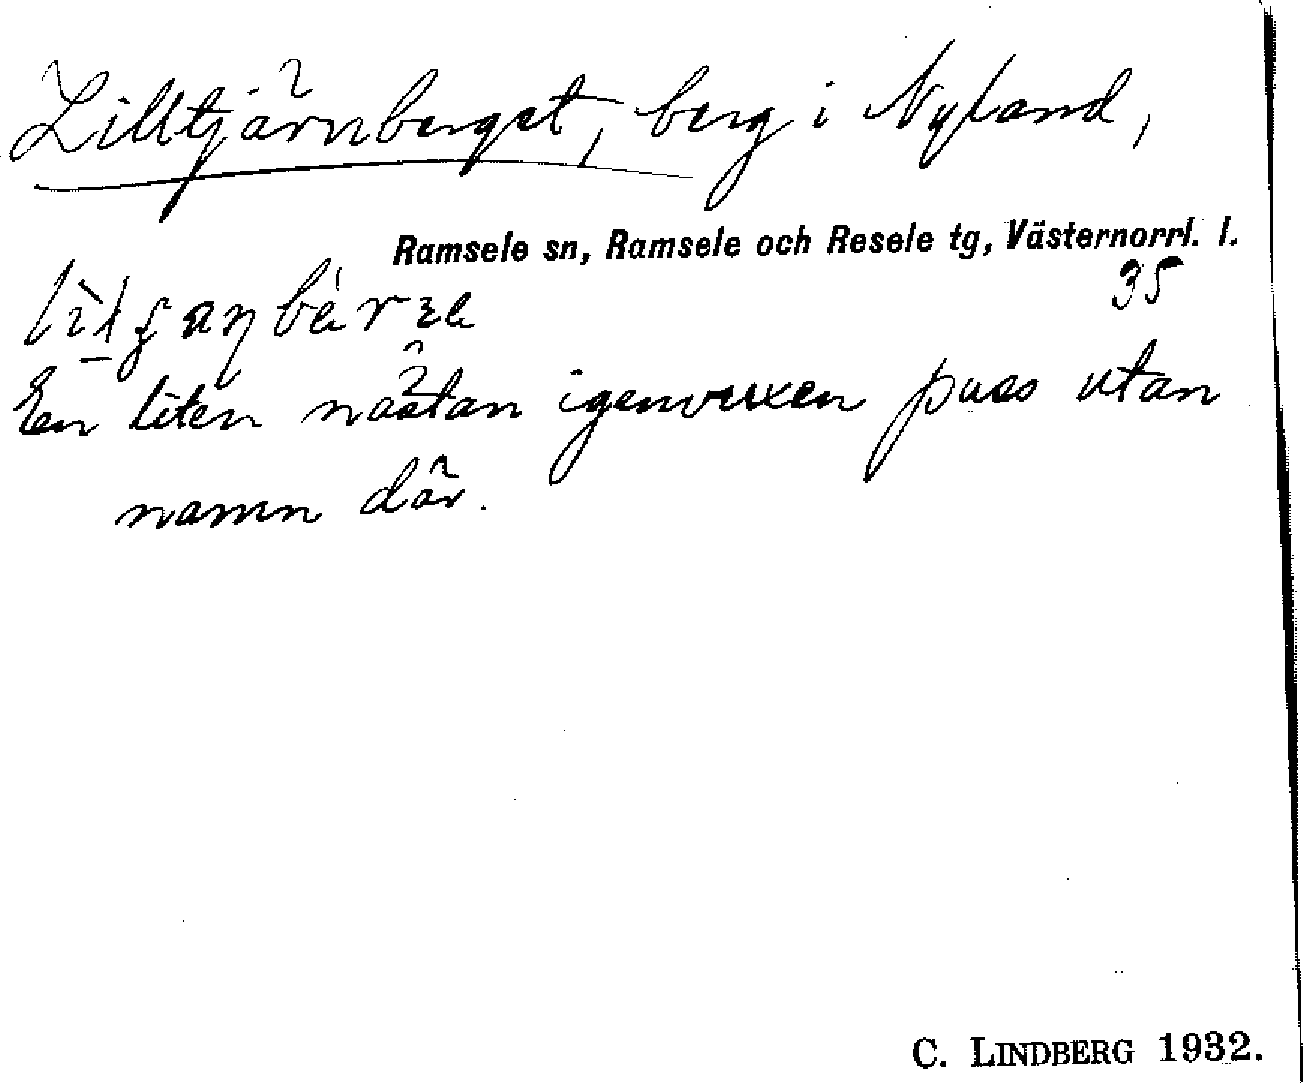 Lilltjärnberget, berg i Nyland,
Ramsele sn, Ramsele och Resele tg, Västernorrl. l.
35
En liten nästan igenvuxen puss utan
namn där.
C. LINDBERG 1932.